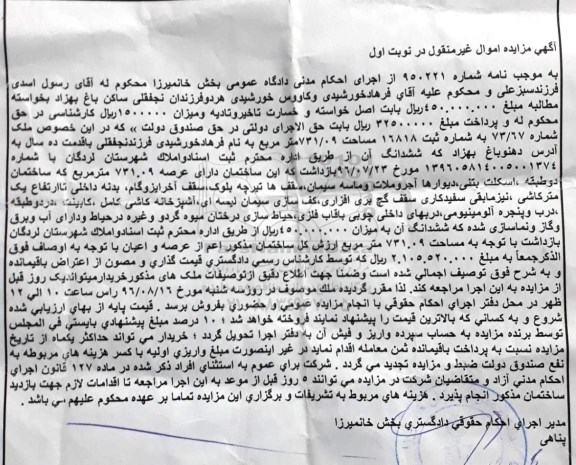 آگهي مزایده اموال غیرمنقول در نوبت اول
به موجب نامه شماره ۹۵۰۲۲۱ از اجرای احکام مدنی دادگاه عمومی بخش خانمیرزا محکوم له آقای رسول اسدی
فرزندسبزعلی و محکوم علیه آقای فرهادخورشیدی وکاووس خورشیدی هردوفرزندان نجفقلی ساکن باغ بهزاد بخواسته
مطالبه مبلغ ۴۵۰.۰۰۰.۰۰۰ریال بابت اصل خواسته و خسارت تاخیروتادیه ومیزان ۱۵۰۰۰۰۰ریال کارشناسی در حق
محکوم له و پرداخت مبلغ ۳۲۵۰۰۰۰۰ ریال بابت حق الاجرای دولتی در حق صندوق دولت » که در این خصوص ملک
شماره ۷۳/۶۷ به شماره ثبت ۱۶۸۱۸ مساحت ۷۳۱/۰۹متر مربع به نام فرهادخورشیدی فرزندنجفقلی باقدمت ده سال به
آدرس دهنوباغ بهزاد که ششدانگ آن از طریق اداره محترم ثبت اسنادواملاک شهرستان لردگان با شماره
۱۳۹۶۰۵۸۱۴۰۰۵۰۰۱۳۷۴ مورخ ۹۶/۰۷/۲۳بازداشت که این ساختمان دارای عرصه ۷۳۱.۰۹ مترمربع که ساختمان
دوطبقه ،اسکلت بتنی،دیوارها آجروملات وماسه سیمان،سقف ها تیرچه بلوک،سقف آخرایزوگام، بدنه داخلی تاارتفاع یک
مترکاشی ،نیزمابقی سفیدکاری ،سقف گچ بری افزاری،کف سازی سیمان لیسه ای،آشپزخانه کاشی کامل ،کابینت ،دردوطبقه
،درب وپنجره آلومینیومی،دربهای داخلی چوبی باقاب فلزی،حیاط سازی درختان میوه گردو وغیره درحیاط ودارای آب وبرق
وگاز ونماسازی شده که ششدانگ آن به میزان ۴۵۰.۰۰۰.۰۰۰ریال از طریق اداره محترم ثبت اسنادواملاک شهرستان لردگان
بازداشت با توجه به مساحت ۷۳۱.۰۹ متر مربع ارزش کل ساختمان مذکور اعم از عرصه و اعیان با توجه به اوصاف فوق
الذکرجمعاً به مبلغ ۲,۱۰۵,۵۲۰,۰۰۰ ریال که توسط کارشناس رسمي دادگستري قیمت گذاري و مصون از اعتراض باقیمانده
و به شرح فوق توصیف اجمالی شده است وضمنا جهت اطلاع دقیق ازتوصیفات ملک های مذکورخریدارمیتواند،یک روز قبل
از مزایده به این اجرا مراجعه کند. لذا مقرر گردیده ملک موصوف در روزسه شنبه مورخ ۹۶/۰۸/۱۶ راس ساعت ۱۰ الي ۱۲
ظهر در محل دفتر اجراي احکام حقوقي با انجام مزایده عمومي و حضوري بفروش برسد . قیمت پایه از بهاي ارزیابي شده
شروع و به کساني که بالاترین قیمت را پیشنهاد نمایند فروخته خواهد شد ؛ ۱۰ درصد مبلغ پیشنهادي بایستي في المجلس
توسط برنده مزایده به حساب سپرده واریز و فیش آن به دفتر اجرا تحویل گردد ؛ خریدار مي تواند حداکثر یکماه از تاریخ
مزایده نسبت به پرداخت باقیمانده ثمن معامله اقدام نماید در غیر اینصورت مبلغ واریزي اولیه با کسر هزینه هاي مربوطه به
نفع صندوق دولت ضبط و مزایده تجدید مي گردد . شرکت براي عموم به استثناي افراد ذکر شده در ماده ۱۲۷ قانون اجراي
احکام مدني آزاد و متقاضیان شرکت در مزایده مي توانند ۵ روز قبل از موعد به این اجرا مراجعه تا اقدامات لازم جهت بازدید
ساختمان مذکور انجام پذیرد . هزینه هاي مربوط به تشریفات و برگزاري این مزایده تماما بر عهده محکوم علیهم مي باشد .
مدیر اجراي احکام حقوقي دادگستري بخش خانمیرزا
پناهي